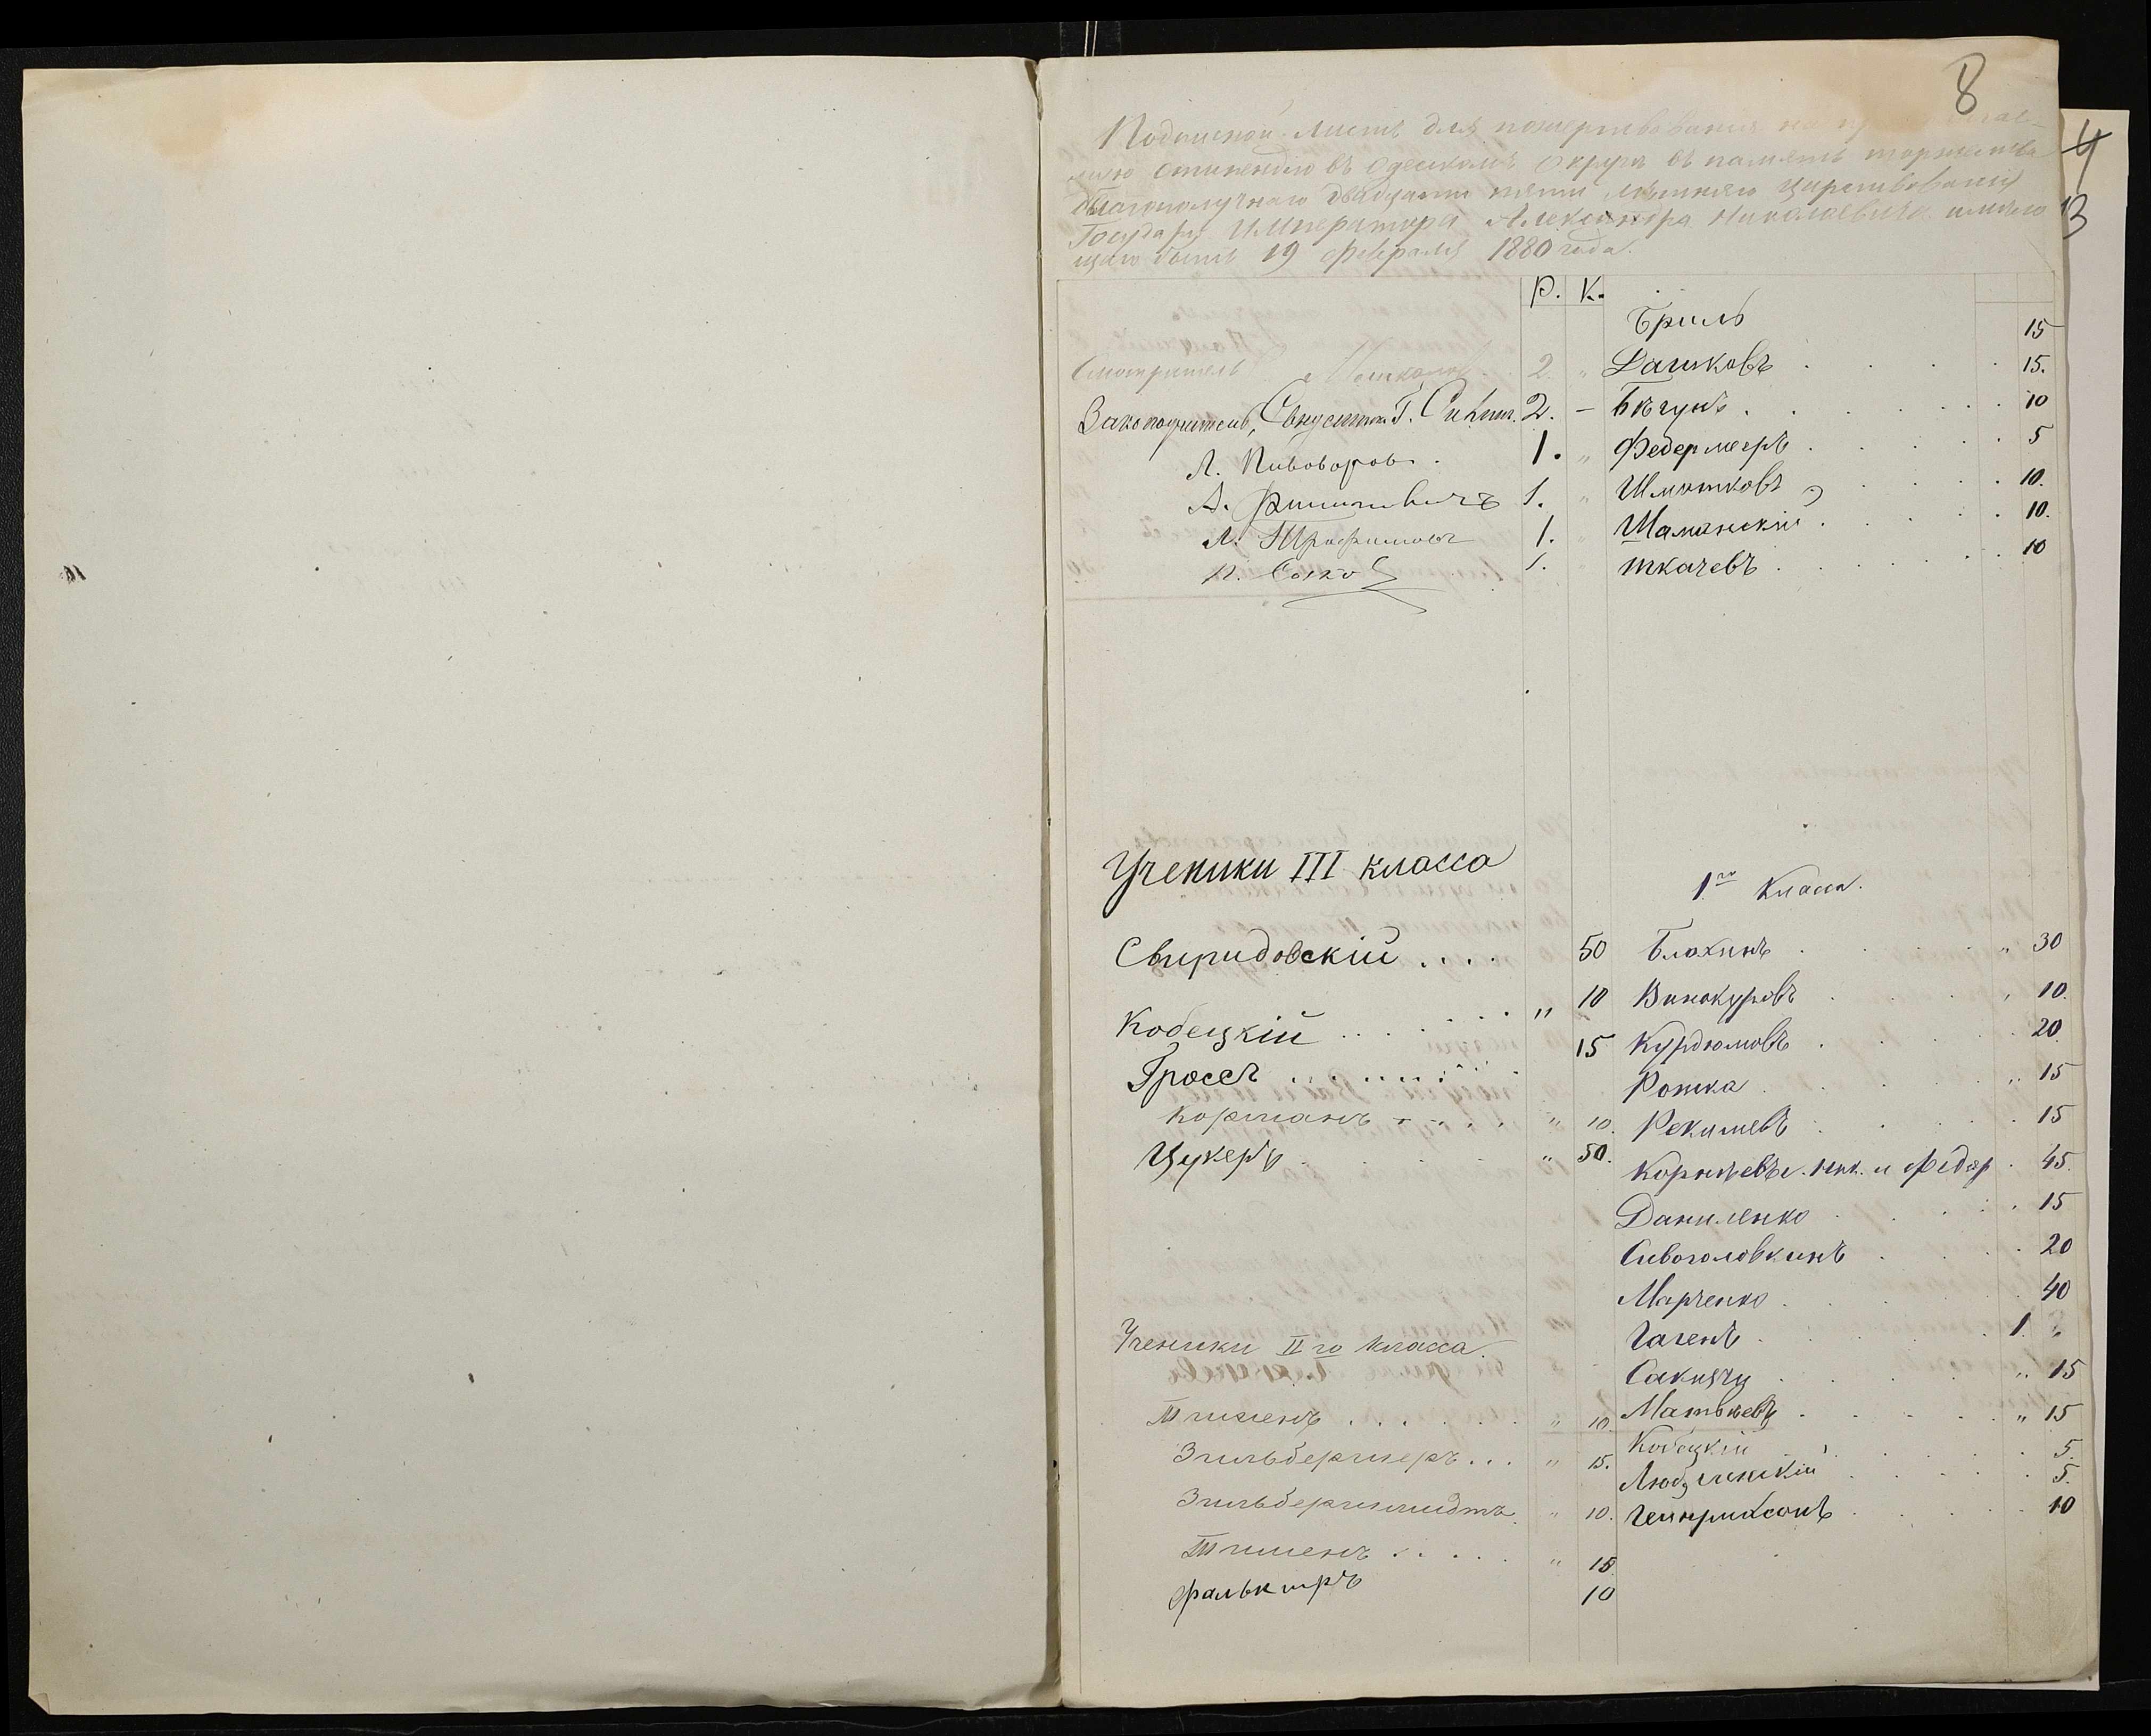 8
4
13
Подписной листъ для пожертвования на
стипендію въ Одесскомъ Округѣ въ память торжества
благополучнаго двадцати пяти лѣтняго царствованія
Государя Императора Александра Николаевича имѣю
щаго быть 19 февраля 1880 года.
Р. К.
Смотритель 2 "
Законоучитель, Священникъ Г. 2. -
Л. Пивоваровъ. 1. "
А. 1. "
Л. Трофимовъ 1. "
П. Сокол 1. "
Бриль 15
Дашковъ . . . 15.
Бѣгунъ . . . . . . 10
Федермееръ . . . . 5
Шмотковъ . . . 10.
Шаманскій . . . . 10.
Ткачевъ . . . . . . 10
Ученики III класса
Свиридовскій . . . . 50
Кобецкій . . . . . . . " 10
Гроссъ . . . . . . . . . 15
Корманъ . . . . . " 10.
Цукеръ . . . . . " 50.
Ученики II го класса
Тиженъ . . . . . . " 10.
Зильбергшеръ . . . " 15.
Зильбершмидтъ. " 10.
Тишенъ . . . . . " 15
10
1го Класса.
Блохинъ . . . . . " 30
Винокуровъ . . . . , 10.
Курдюмовъ . . . . . 20
Рошка . . . . . " 15
Рекишевъ . . . . . 15
Корнѣевы. Ник. и Фёдор . 45.
Даниленко . . . . . 15
Сивоголовкинъ . . . . 20
Марченко . . . . . 40
Гагенъ . . . . . . 1
Сакизчи . . . . . " 15
Матвѣевъ . . . . . " 15
Кобецкій . . . . . 5.
Любчинскій . . . . . 5.
Гейнрихсонъ . . . . 10